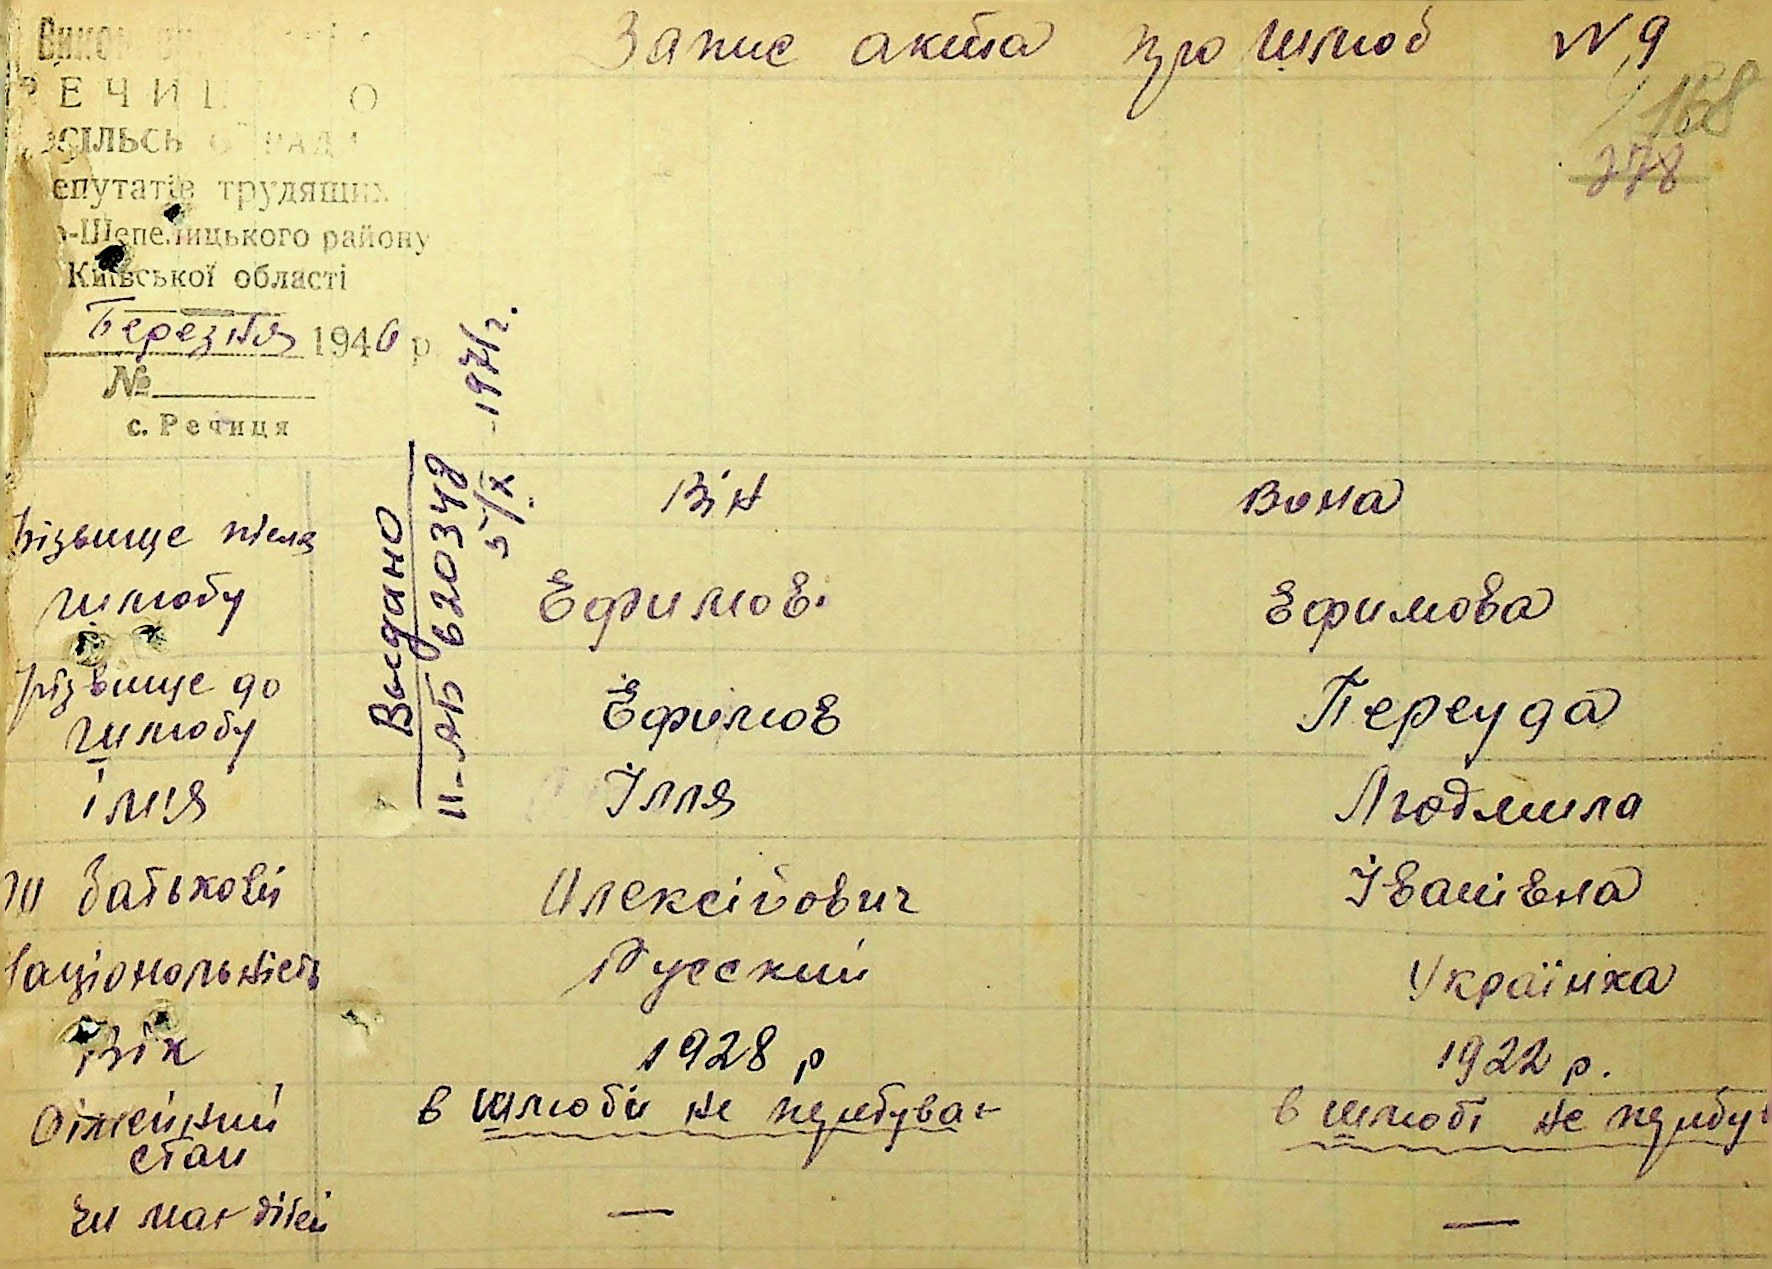 Запис акта про шлюб N 9
168
278
РЕЧИ О
СІЛЬСЬ РАД
епутатів трудящих
о-Шепелицького району
Київської області
Березня 1946 р
№
с. Речиця
Выдано
II-АБ 620348
5/X -1971г.
Він Вона
Прізвище після
шлюбу Ефимов Ефимова
Прізвище до
шлюбу Ефимов Переуда
Імя Ілля Людмила
По Батькові Олексійович Іванівна
Національність Русский Українка
Вік 1928 р 1922 р.
Сімейний
стан в шлюби не пербував в шлюбі не пербув
Чи має дітей — —